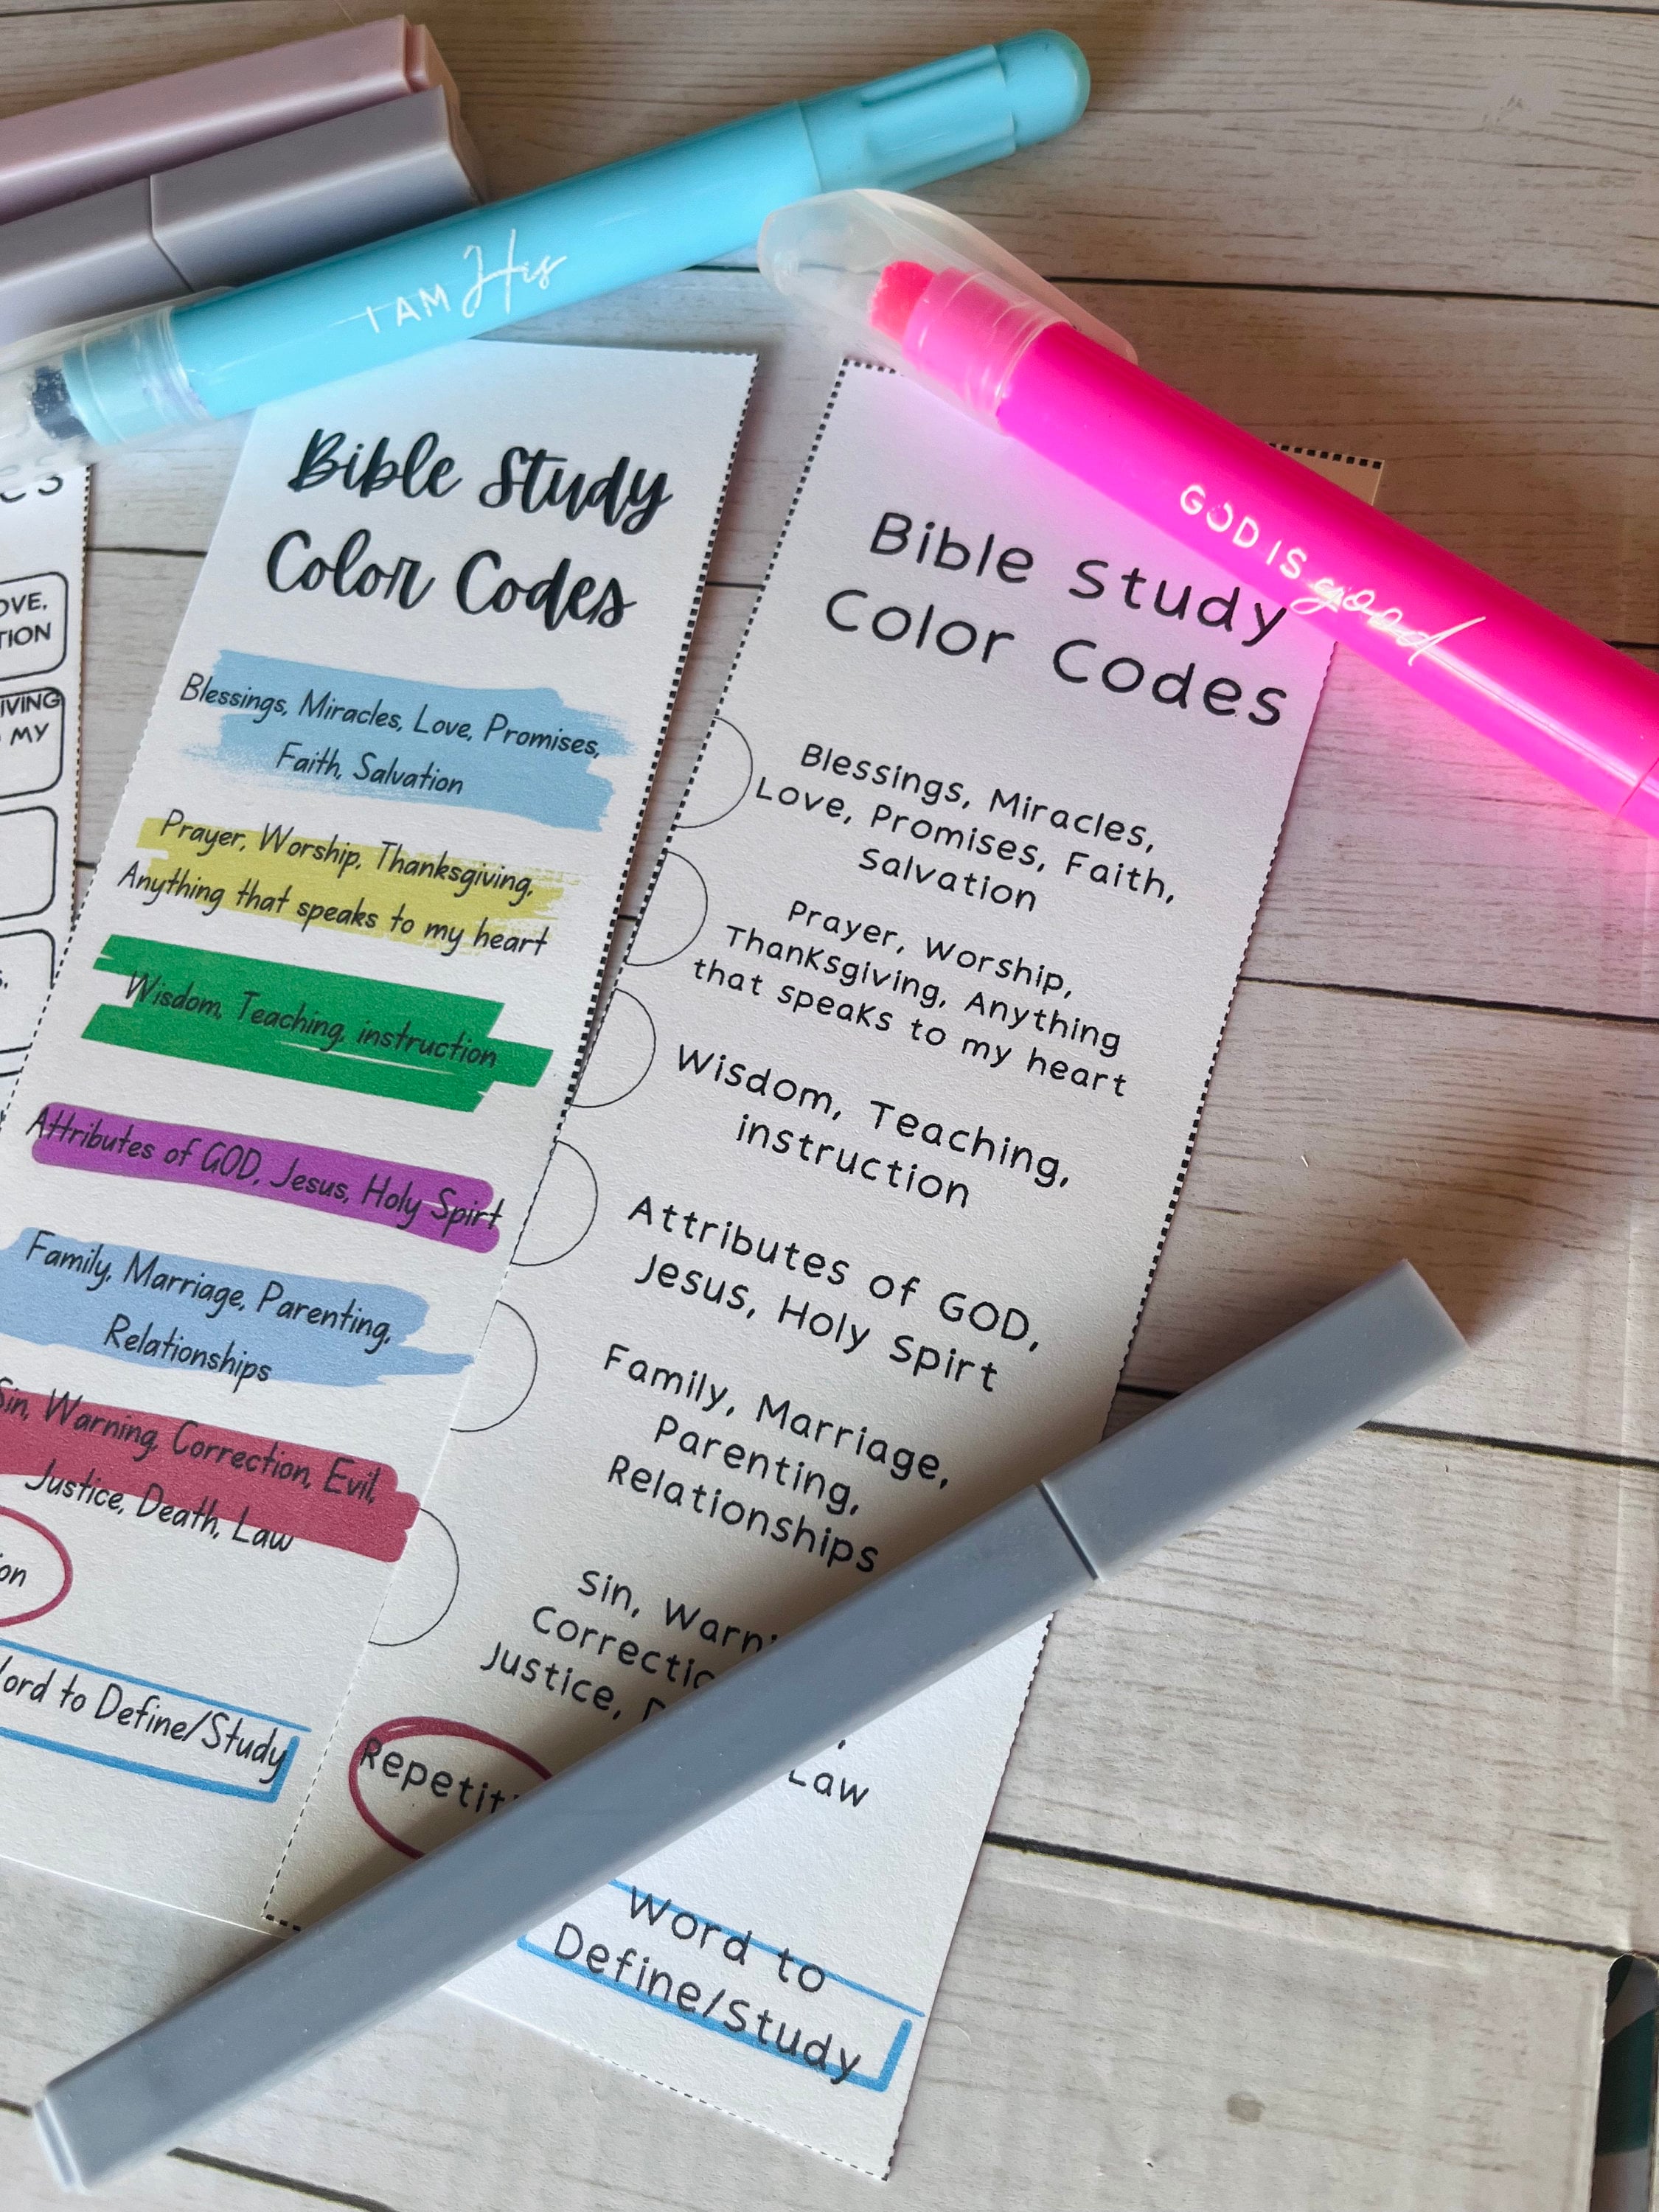 I AM His
GOD IS good
OVE,
TION
IVING
MY
Bible Study
Color Codes
Blessings, Miracles, Love, Promises,
Faith, Salvation
Prayer, Worship, Thanksgiving,
Anything that speaks to my heart
Wisdom, Teaching, instruction
Attributes of GOD, Jesus, Holy Spirt
Family, Marriage, Parenting,
Relationships
Sin, Warning, Correction, Evil,
Justice, Death, Law
on
ord to Define/Study
Bible Study
Color Codes
Blessings, Miracles,
Love, Promises, Faith,
Salvation
Prayer, Worship,
Thanksgiving, Anything
that speaks to my heart
Wisdom, Teaching,
instruction
Attributes of GOD,
Jesus, Holy Spirt
Family, Marriage,
Parenting,
Relationships
Sin, Warni
Correctio
Justice, D
Law
Repetit
Word to
Define/Study